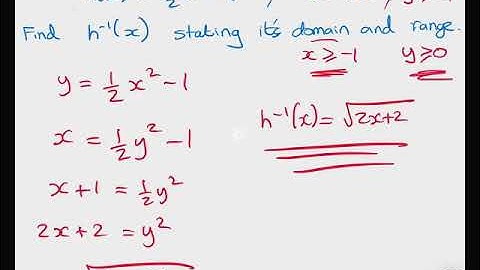 Find h⁻¹(x) stating it's domain and range.
x ≥ -1 y ≥ 0
y = ½x² - 1
h⁻¹(x) = √2x+2
x = ½y² - 1
x + 1 = ½y²
2x + 2 = y²